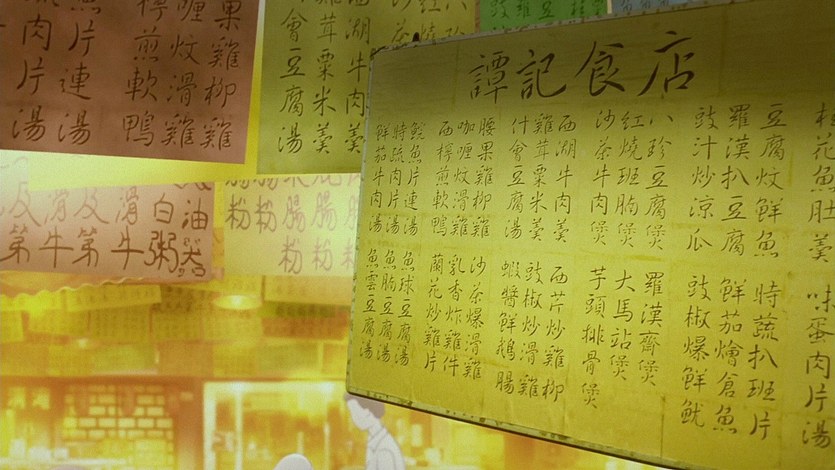 譚記食店
桂花魚肚羹
豆腐炆鮮魚
羅漢扒豆腐
豉汁炒涼瓜
八珍豆腐煲
紅燒班腩煲
沙茶牛肉煲
西湖牛肉羹
雞茸粟米羹
什會豆腐湯
腰果雞柳
咖喱炆滑雞
西檸煎軟鴨
魚片連湯
時蔬肉片湯
鮮茄牛肉湯
味蛋肉片湯
時蔬扒班片
鮮茄燴倉魚
豉椒爆鮮魷
羅漢齋煲
大馬站煲
芋頭排骨煲
西芹炒雞柳
豉椒炒滑雞
蝦醬鮮鵝腸
沙茶爆滑雞
乳香炸雞件
蘭花炒雞片
魚球豆腐湯
魚腩豆腐湯
魚雲豆腐湯
八
紅燒
沙茶
湖牛肉羹
茸粟米羹
會豆腐湯
果雞柳
喱炆滑雞
檸煎軟鴨
魚片連湯
肉片湯
腸粉
腸粉
腸粉
粉
油
白粥
滑牛
及第
滑牛
及第